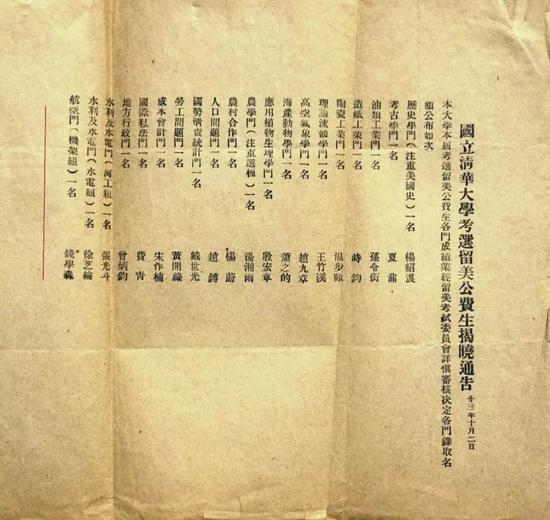 國立清華大學考選留美公費生揭曉通告 廿三年十月二日
本大學本屆考選留美公費生各門成績業經留美考試委員會詳慎審核決定各門錄取名
額公布如次
歷史學門（注重美國史）一名 楊紹震
考古學門一名 夏鼐
油類工業門一名 孫令衔
造紙工業門一名 時鈞
陶瓷工業門一名 温步頤
理論流體學門一名 王竹溪
高空氣象學門一名 趙九章
海產動物學門一名 蕭之的
應用植物生理學門一名 殷宏章
農學門（注重選種）一名 湯湘雨
農村合作門一名 楊蔚
人口問題門一名 趙鎛
國勢清查統計門一名 戴世光
勞工問題門一名 黃開祿
成本會計門一名 宋作楠
國際私法門一名 費青
地方行政門一名 曾炳鈞
水利及水電門（河工組）一名 張光斗
水利及水電門（水電組）一名 徐芝綸
航空門（機架組）一名 錢學森